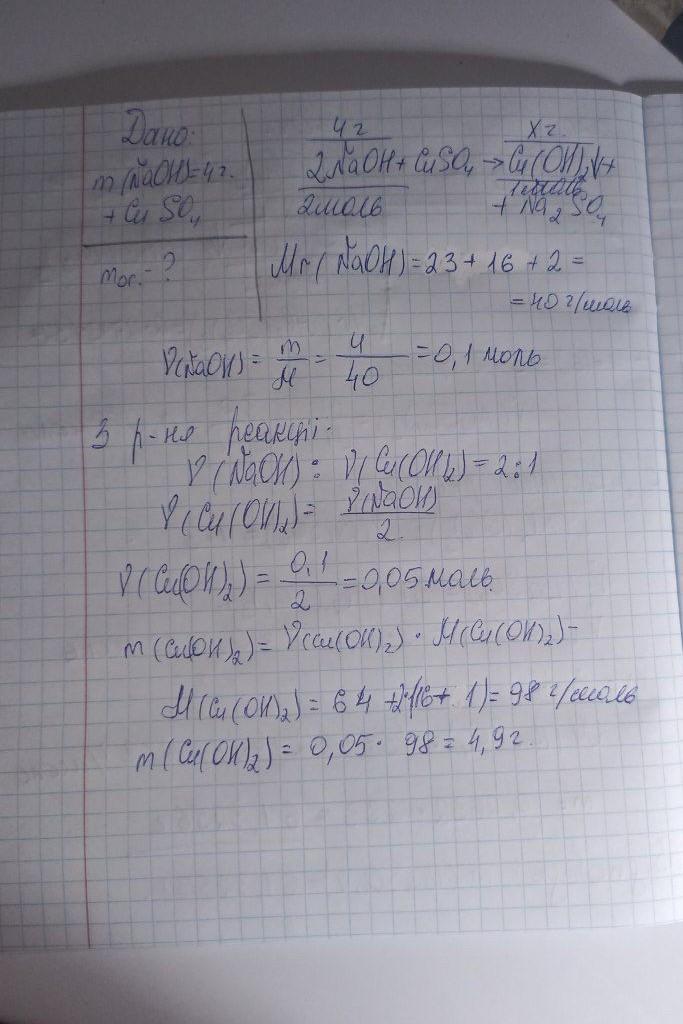 Дано:
m(NaOH)=4г.
+ CuSO₄
mос.- ?
4г    Xг.
2NaOH + CuSO₄ → Cu(OH)₂↓+
2моль    1моль
+ Na₂SO₄
Mr(NaOH)=23+16+2=
=40 г/моль
ν(NaOH)= m/M = 4/40 =0,1 моль
З р-ня реакції.
ν(NaOH): ν(Cu(OH₂)=2:1
ν(Cu(OH)₂)= ν(NaOH)/2.
ν(Cu(OH)₂)= 0,1/2 =0,05моль.
m(Cu(OH)₂)= ν(Cu(OH)₂)·M(Cu(OH)₂)-
M(Cu(OH)₂)= 64 +2·(16+ 1)=98 г/моль
m(Cu(OH)₂)= 0,05· 98 = 4,9г.